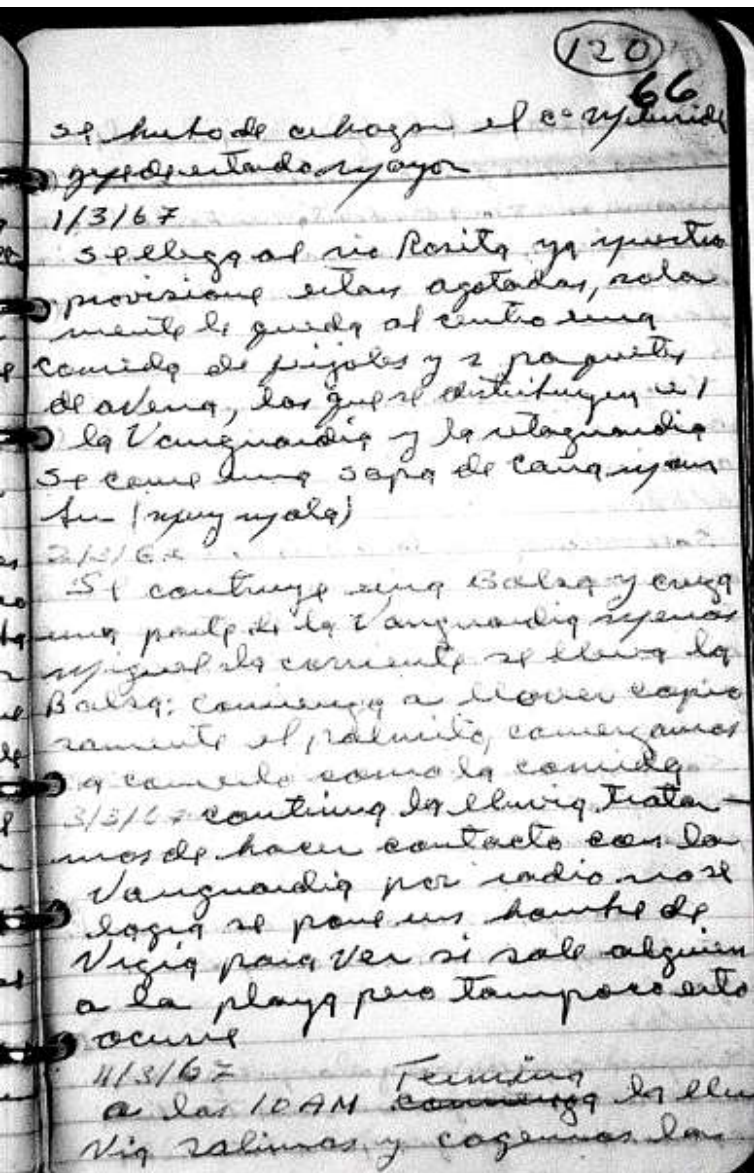 120
66
se huto de cuhogar el co
gefe de estado mayor
1/3/67
Se llega al rio Rosita ya nuestra
provisione estan agotadas, sola
mente le queda al centro una
comida de frijoles y 2 paquetes
de avena, los que se distribuyen
la Vanguardia y la retaguardia
se come una sopa de
(muy mala)
2/3/67
Se contruye una Balsa y cruza
una parte de la Vanguardia menos
Miguel la corriente se lleva la
Balsa; comienza a llover copio
samente el palmito, comenzamos
a comerlo como la comida
3/3/67 continua la lluvia trata-
mos de hacer contacto con la
Vanguardia por radio no se
logra se pone un hombre de
Vigia para ver si sale alguien
a la playa pero tampoco esto
ocurre
4/3/67 Termina
a las 10 AM comienza la llu
via salimos y cogemos las